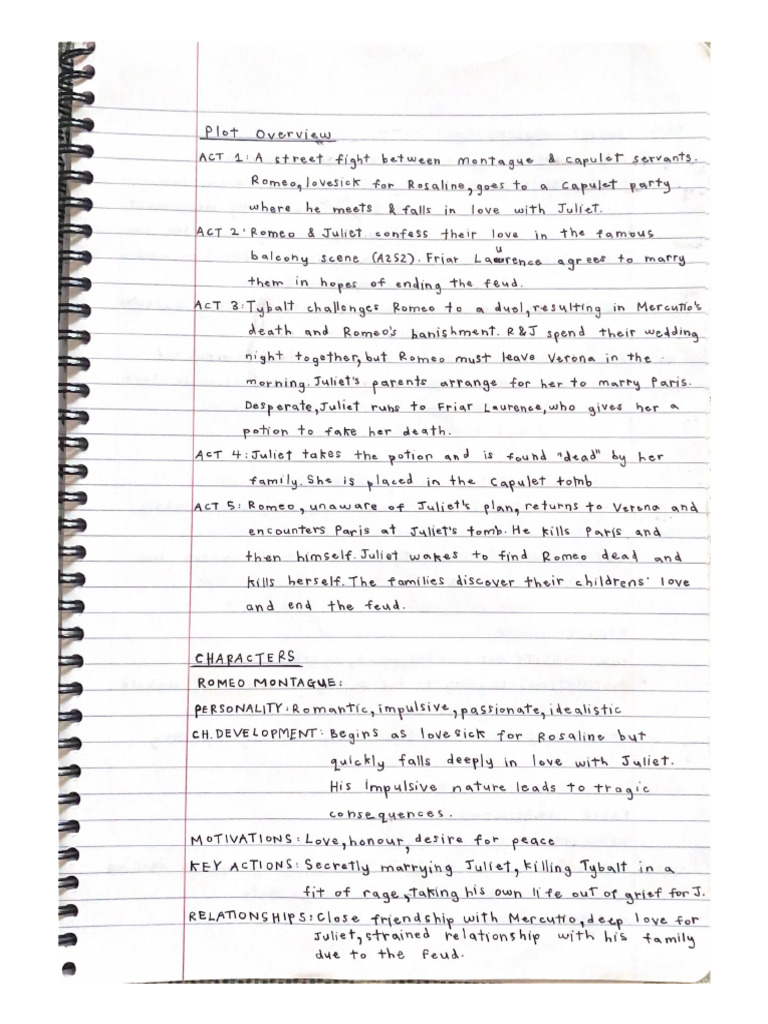 Plot Overview
ACT 1: A street fight between montague & capulet servants.
Romeo, lovesick for Rosaline, goes to a capulet party
where he meets & falls in love with Juliet.
ACT 2: Romeo & Juliet confess their love in the famous
balcony scene (A2S2). Friar Laurence agrees to marry
them in hopes of ending the feud.
ACT 3: Tybalt challenges Romeo to a duel, resulting in Mercutio's
death and Romeo's banishment. R&J spend their wedding
night together, but Romeo must leave Verona in the
morning. Juliet's parents arrange for her to marry Paris.
Desperate, Juliet runs to Friar Laurence, who gives her a
potion to fake her death.
ACT 4: Juliet takes the potion and is found "dead" by her
family. She is placed in the Capulet tomb
ACT 5: Romeo, unaware of Juliet's plan, returns to Verona and
encounters Paris at Juliet's tomb. He kills Paris and
then himself. Juliet wakes to find Romeo dead and
kills herself. The families discover their childrens' love
and end the feud.
CHARACTERS
ROMEO MONTAGUE:
PERSONALITY: Romantic, impulsive, passionate, idealistic
CH. DEVELOPMENT: Begins as lovesick for Rosaline but
quickly falls deeply in love with Juliet.
His impulsive nature leads to tragic
consequences.
MOTIVATIONS: Love, honour, desire for peace
KEY ACTIONS: Secretly marrying Juliet, killing Tybalt in a
fit of rage, taking his own life out of grief for J.
RELATIONSHIPS: Close friendship with Mercutio, deep love for
Juliet, strained relationship with his family
due to the feud.